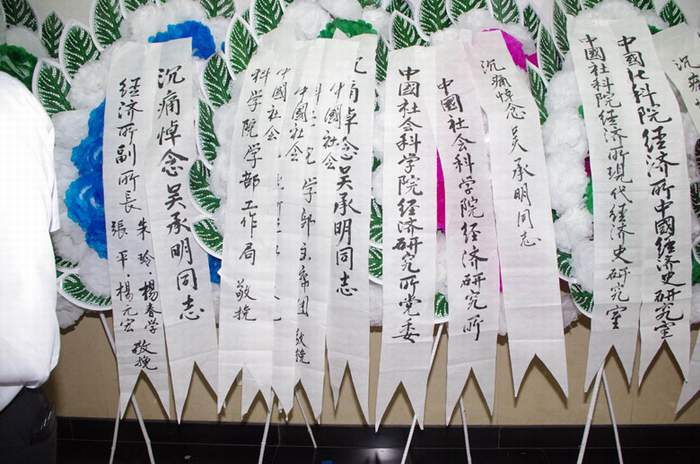 沉痛悼念吴承明同志
经济所副所长
朱玲·杨春学
張平·楊元宏
敬挽
科学院学部工作局
敬挽
中國社会
中國社会
学部主席团
敬挽
中國社会
悼念吴承明同志
中國社会科学院经济研究所党委
中國社会科学院经济研究所
沉痛悼念吴承明同志
中國社科院经济所現代经济史研究室
中國社科院经济所中國经济史研究室
沉痛